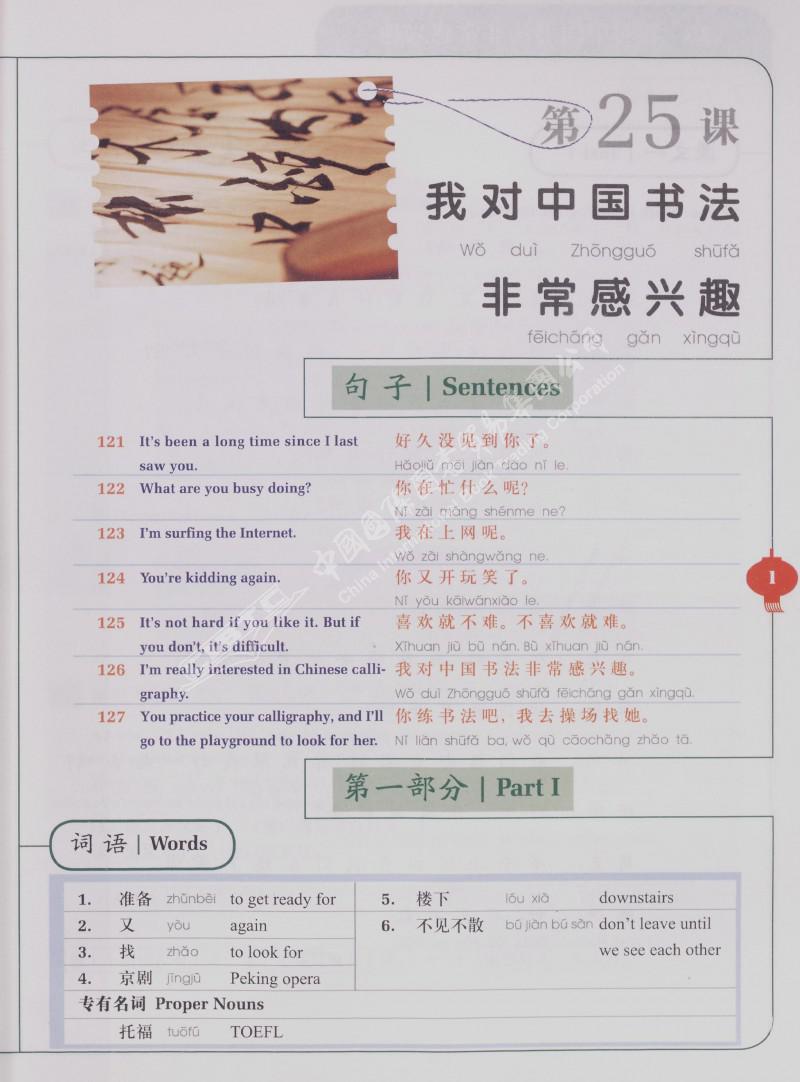 第25课
我对中国书法
Wǒ duì Zhōngguó shūfǎ
非常感兴趣
fēicháng gǎn xìngqù
句子 | Sentences
121 It's been a long time since I last 好久没见到你了。
saw you. Hǎojiǔ méi jiàn dào nǐ le.
122 What are you busy doing? 你在忙什么呢?
Nǐ zài máng shénme ne?
123 I'm surfing the Internet. 我在上网呢。
Wǒ zài shàngwǎng ne.
124 You're kidding again. 你又开玩笑了。
Nǐ yòu kāiwánxiào le.
125 It's not hard if you like it. But if 喜欢就不难。不喜欢就难。
you don't, it's difficult. Xǐhuan jiù bù nán. Bù xǐhuan jiù nán.
126 I'm really interested in Chinese calli- 我对中国书法非常感兴趣。
graphy. Wǒ duì Zhōngguó shūfǎ fēicháng gǎn xìngqù.
127 You practice your calligraphy, and I'll 你练书法吧,我去操场找她。
go to the playground to look for her. Nǐ liàn shūfǎ ba, wǒ qù cāochǎng zhǎo tā.
1
第一部分 | Part I
词语 | Words
1. 准备 zhǔnbèi to get ready for
2. 又 yòu again
3. 找 zhǎo to look for
4. 京剧 jīngjù Peking opera
5. 楼下 lóu xià downstairs
6. 不见不散 bú jiàn bú sàn don't leave until
we see each other
专有名词 Proper Nouns
托福 tuōfú TOEFL
中国国际图书贸易集团公司
China International Book Trading Corporation